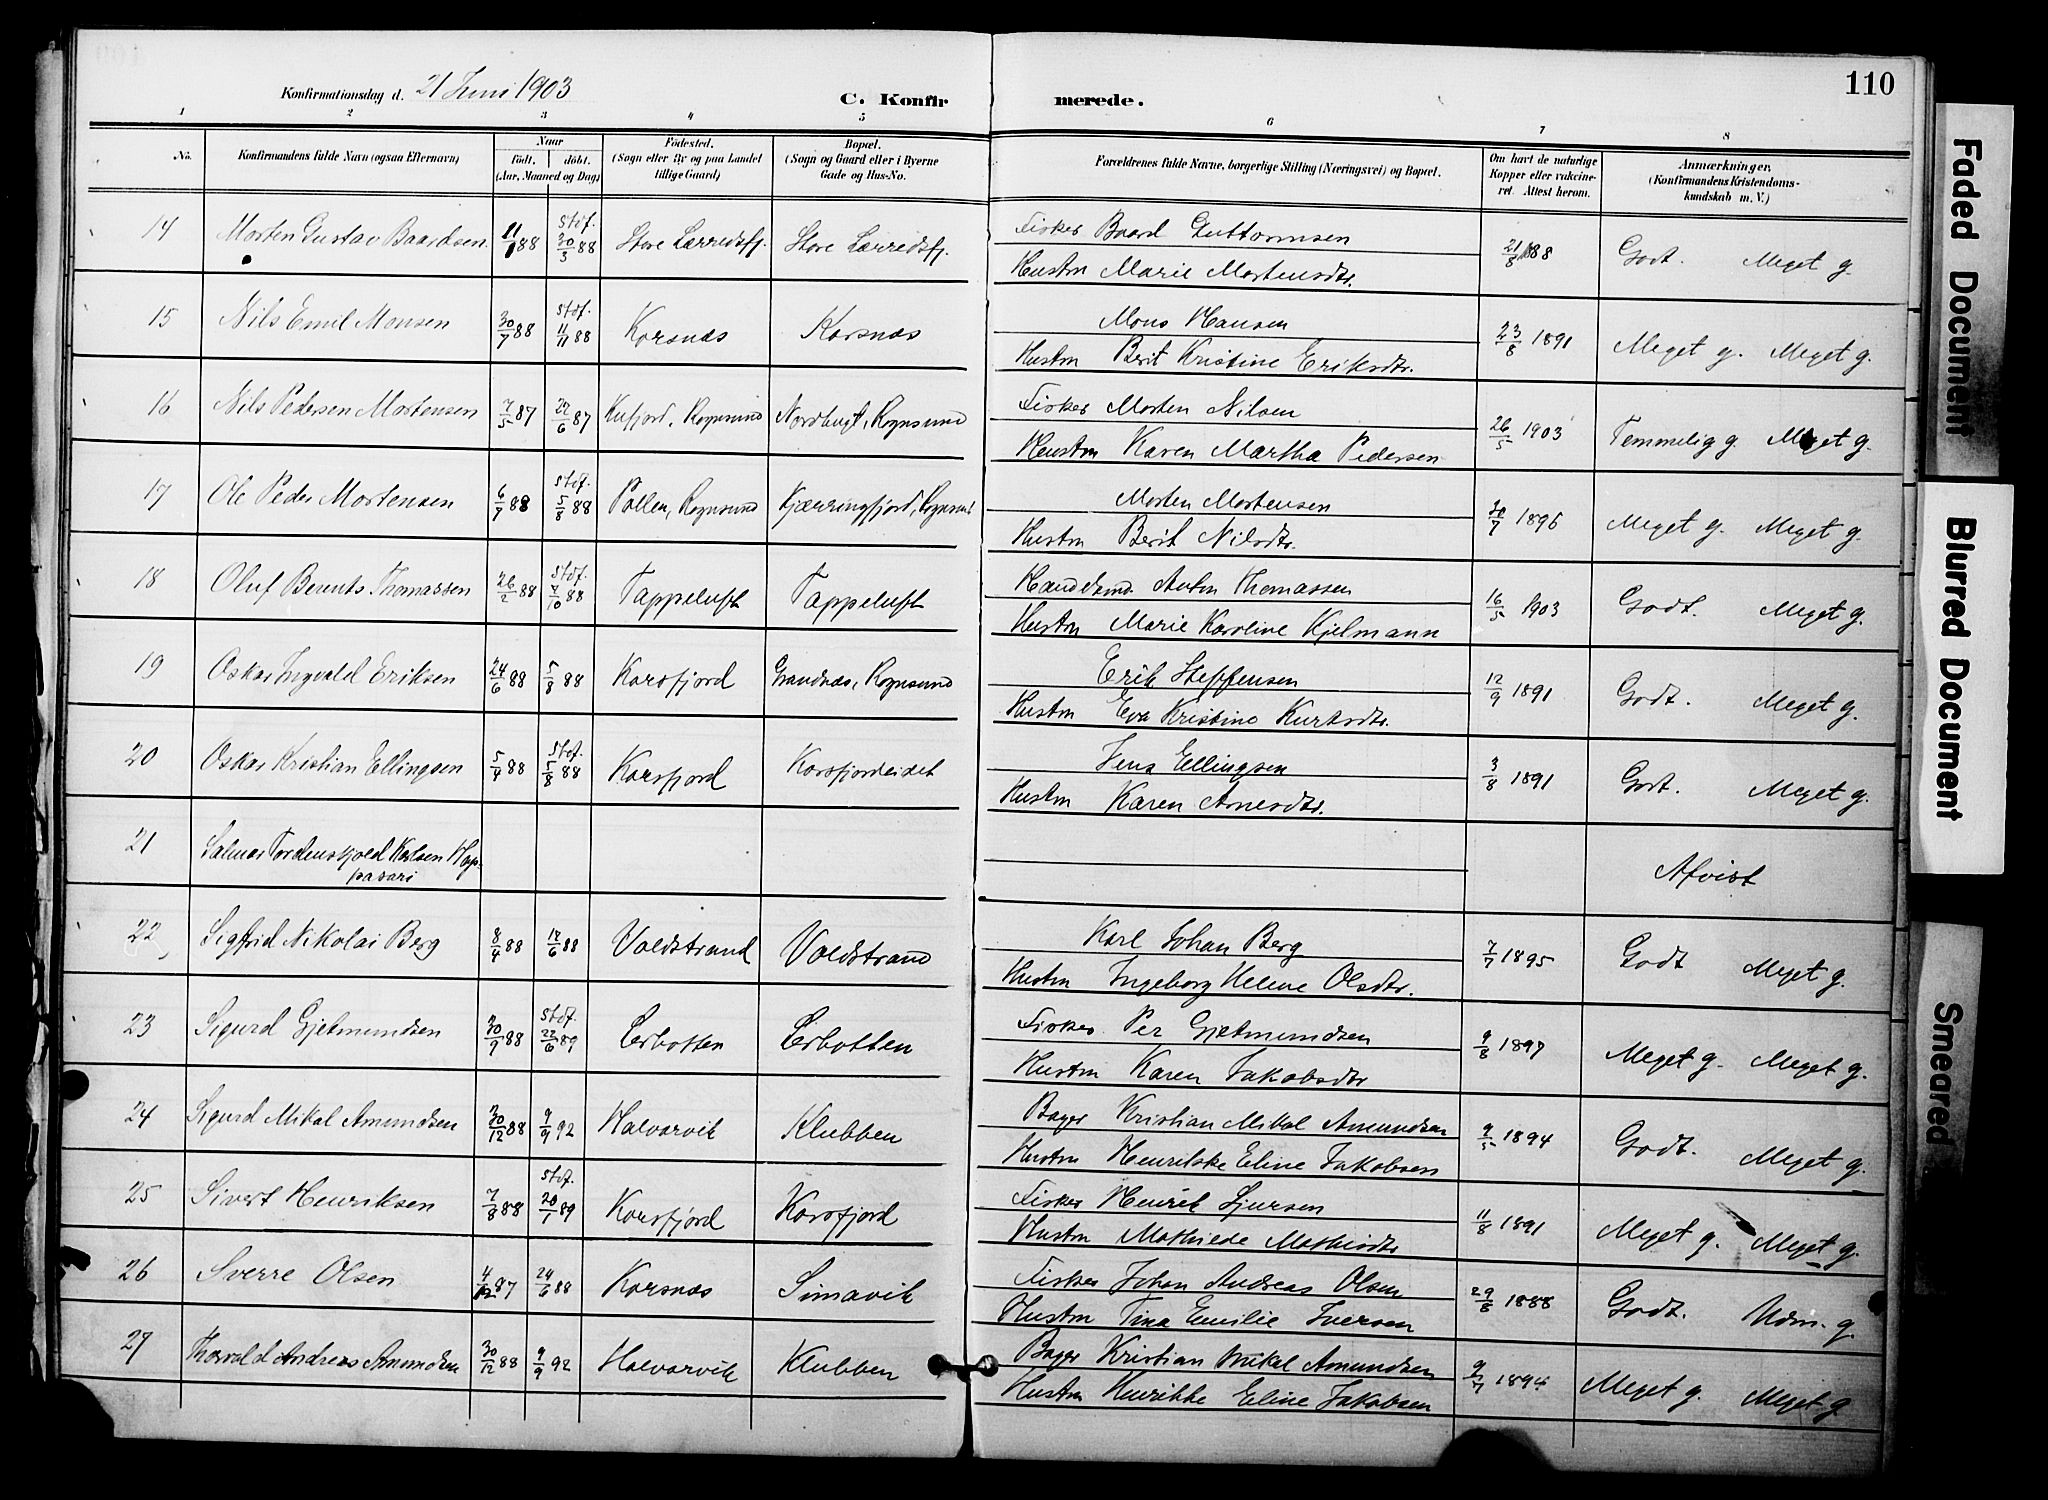 110
Konfirmationsdag d. 21 Juni 1903
C. Konfirmerede.
1 2 3 4 5 6 7 8
No.
Konfirmandens fulde Navn (ogsaa Efternavn)
Naar
født. døbt.
(Aar, Maaned og Dag)
Fødested.
(Sogn eller By og paa Landet
tillige Gaard)
Bopæl.
(Sogn og Gaard eller i Byerne
Gade og Hus-No.
Forældrenes fulde Navne, borgerlige Stilling (Næringsvei) og Bopæl.
Om havt de naturlige
Kopper eller vakcine-
ret. Attest herom.
Anmærkninger.
(Konfirmandens Kristendoms-
kundskab m. V.)
14 Morten Gustav Baardsen 11/1 88 stdf. 30/3 88 Store Lerredsfj. Store Lerredsfj. Fisker Baard Guttormsen 21/8 88 Godt. Meget g.
Hustru Marie Mortensdtr.
15 Nils Emil Monsen 30/7 88 stdf. 11/11 88 Korsnæs Korsnæs Mons Hansen 23/8 1891 Meget g. Meget g.
Hustru Berit Kristine Eriksdtr.
16 Nils Pedersen Mortensen 7/5 87 22/6 87 Kufjord, Rognsund Nordbugt, Rognsund Fisker Morten Nilsen 26/5 1903 Temmelig g. Meget g.
Hustru Karen Martha Pedersen
17 Ole Peder Mortensen 6/7 88 stdf. 5/8 88 Pollen, Rognsund Kjærringfjord, Rognsun Morten Mortensen 30/7 1896 Meget g. Meget g.
Hustru Berit Nilsdtr.
18 Oluf Berents Thomassen 26/2 88 stdf. 7/10 88 Tappeluft Tappeluft Handelsmd. Anton Thomassen 16/5 1903 Godt. Meget g.
Hustru Marie Karoline Kjelmann
19 Oskar Ingvald Eriksen 24/6 88 5/8 88 Korsfjord Grandnæs, Rognsund Erik Steffensen 12/9 1891 Godt. Meget g.
Hustru Eva Kristine Kurtsdtr.
20 Oskar Kristian Ellingsen 5/4 88 stdf. 5/8 88 Korsfjord Korsfjordeidet Jens Ellingsen 3/8 1891 Godt. Meget g.
Hustru Karen Arnesdtr.
21 Salmar Tordenskjold Karlsen Hap-
pasari Afvist
22 Sigfrid Nikolai Berg 8/4 88 17/6 88 Voldstrand Voldstrand Karl Johan Berg 7/7 1895 Godt Meget g.
Hustru Ingeborg Helene Olsdtr.
23 Sigurd Gjetmundsen 30/9 88 stdf. 22/6 89 Lerbotten Lerbotten Fisker Per Gjetmundsen 9/8 1897 Meget g. Meget g.
Hustru Karen Jakobsdtr
24 Sigurd Mikal Amundsen 30/12 88 9/9 92 Halvarvik Klubben Bager Kristian Mikal Amundsen 9/5 1894 Godt. Meget g.
Hustru Henrikke Eline Jakobsen
25 Sivert Henriksen 7/8 88 stdf. 20/1 89 Korsfjord Korsfjord Fisker Henrik Sjursen 11/8 1891 Meget g. Meget g.
Hustru Mathilde Mathisdtr
26 Sverre Olsen 4/12 87 24/6 88 Korsnæs Simavik Fisker Johan Andreas Olsen 29/8 1888 Godt. Udm. g.
Hustru Tina Emilie Iversen
27 Thorvald Andreas Amundsen 30/12 88 9/9 92 Halvarvik Klubben Bager Kristian Mikal Amundsen 9/7 1894 Meget g. Meget g.
Hustru Henrikke Eline Jakobsen
Faded Document
Blurred Document
Smeared